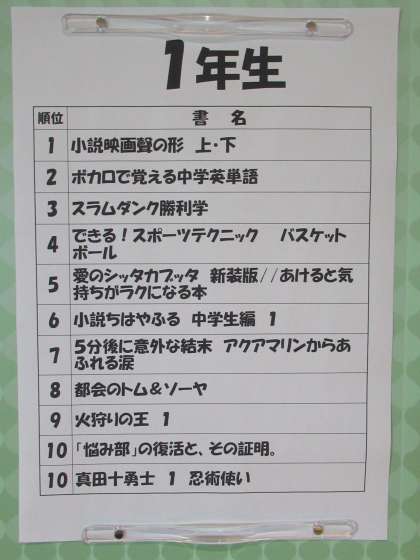 1年生
順位 書名
1 小説映画聲の形 上・下
2 ボカロで覚える中学英単語
3 スラムダンク勝利学
4 できる!スポーツテクニック バスケット
ボール
5 愛のシッタカブッタ 新装版//あけると気
持ちがラクになる本
6 小説ちはやふる 中学生編 1
7 5分後に意外な結末 アクアマリンからあ
ふれる涙
8 都会のトム&ソーヤ
9 火狩りの王 1
10 「悩み部」の復活と、その証明。
10 真田十勇士 1 忍術使い